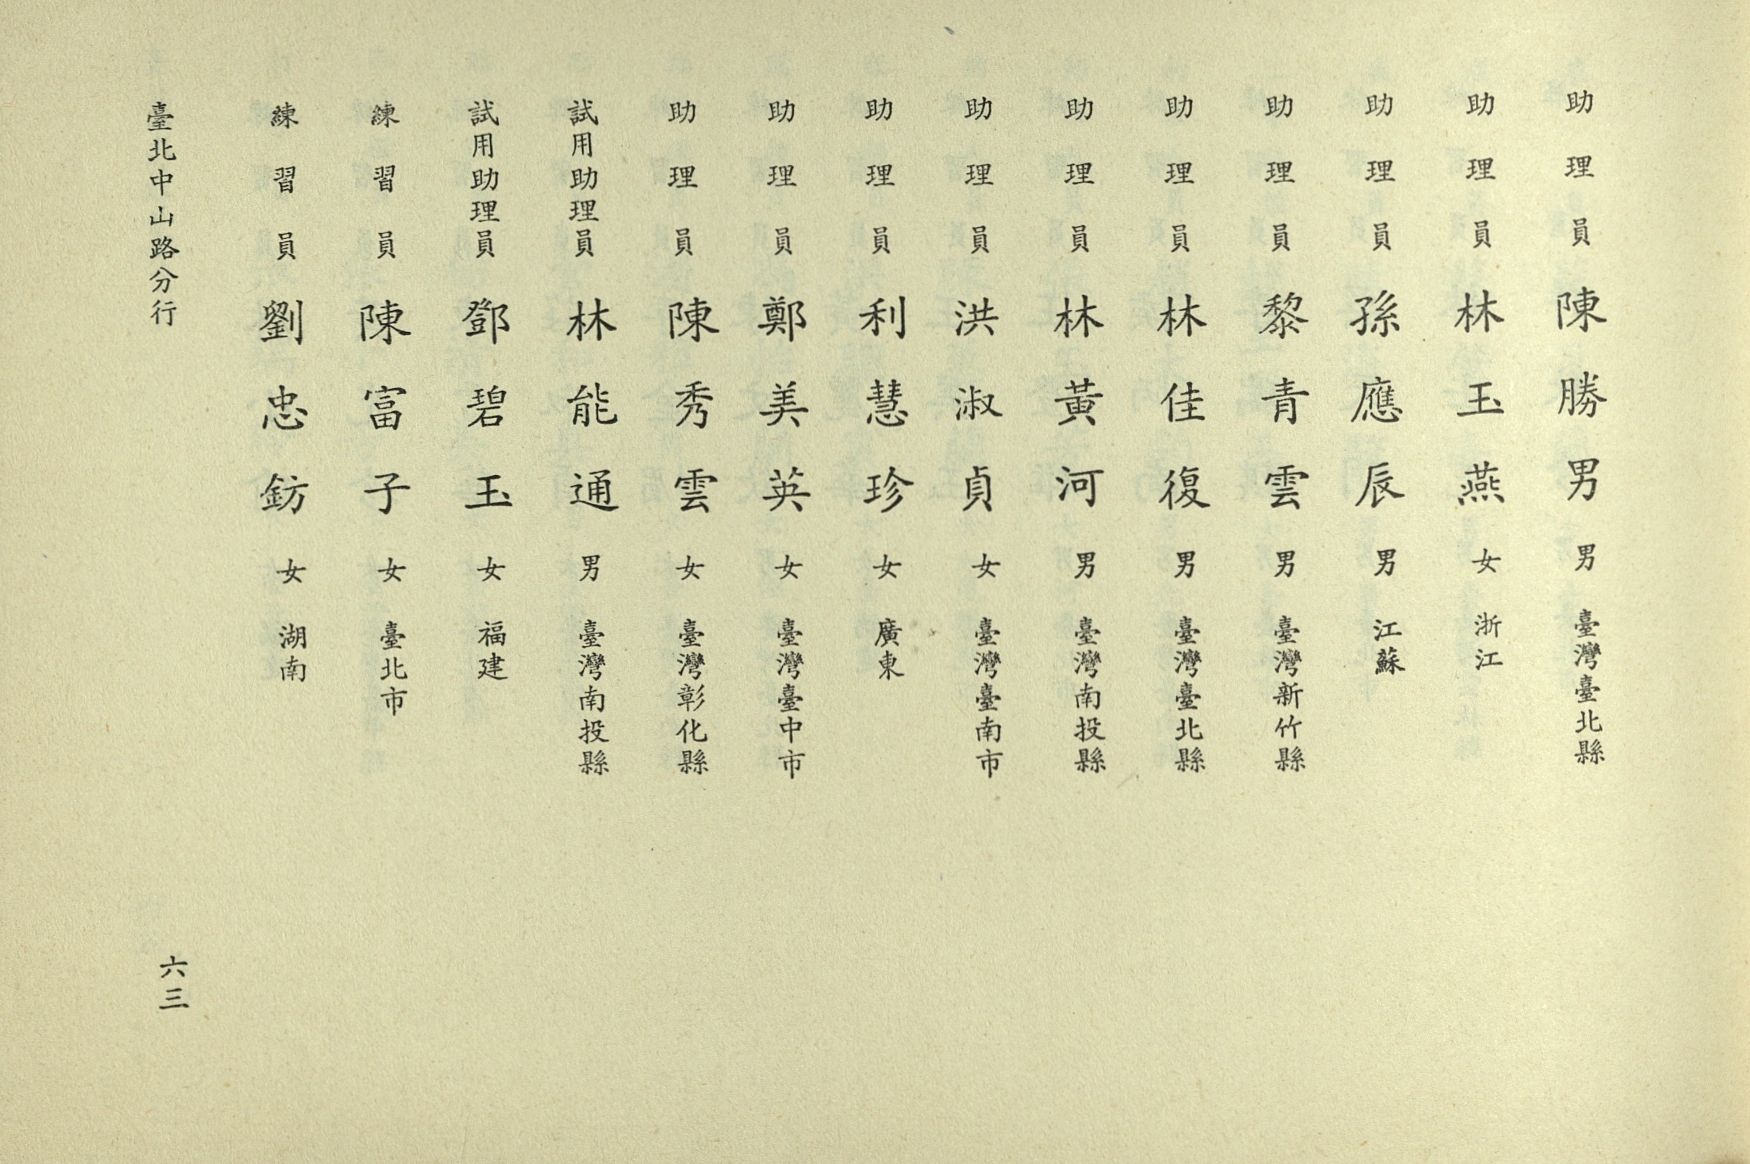 助理員 陳勝男 男 臺灣臺北縣
助理員 林玉燕 女 浙江
助理員 孫應辰 男 江蘇
助理員 黎青雲 男 臺灣新竹縣
助理員 林佳復 男 臺灣臺北縣
助理員 林黃河 男 臺灣南投縣
助理員 洪淑貞 女 臺灣臺南市
助理員 利慧珍 女 廣東
助理員 鄭美英 女 臺灣臺中市
助理員 陳秀雲 女 臺灣彰化縣
試用助理員 林能通 男 臺灣南投縣
試用助理員 鄧碧玉 女 福建
練習員 陳富子 女 臺北市
練習員 劉忠鈁 女 湖南
臺北中山路分行
六三